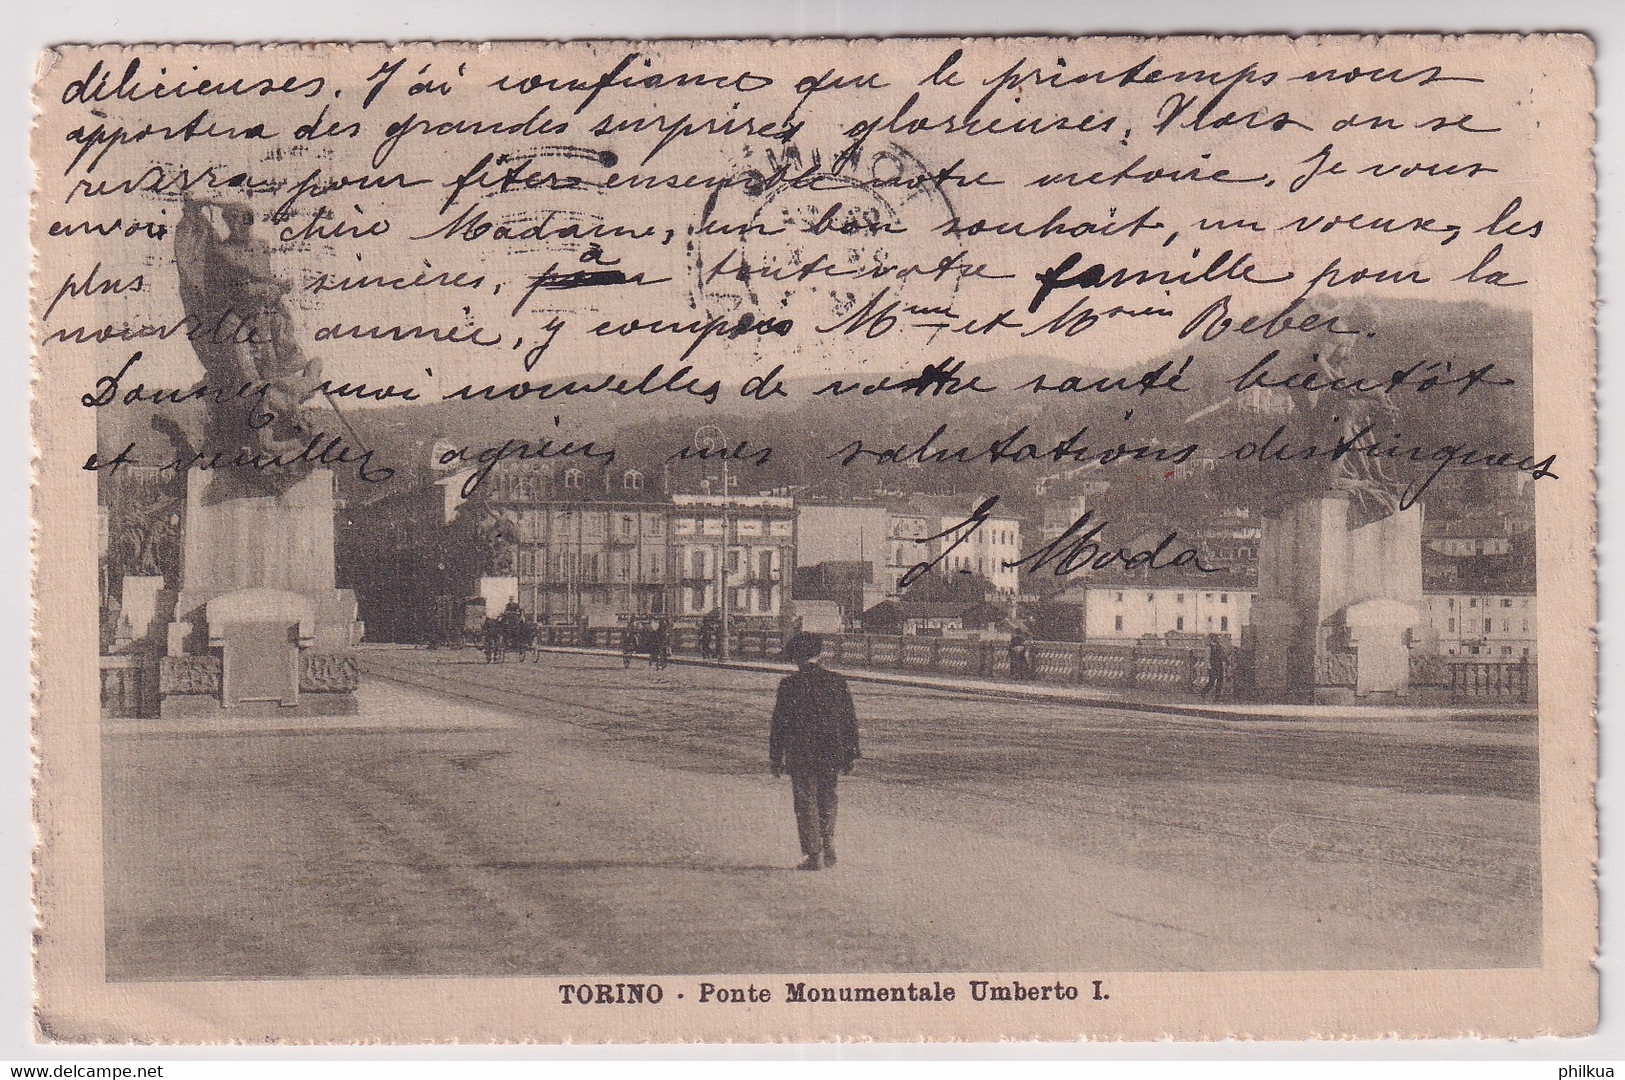 délicieuses. J'ai confiance que le printemps nous
apportera des grandes surprises glorieuses. Alors on se
reverra pour fêter ensemble notre victoire. Je vous
envoie chère Madame, un bon souhait, un voeux, les
plus sincères, à toute votre famille pour la
nouvelle année, y compris Mme et Msieu Reber.
Donnez moi nouvelles de votre santé bientôt
et veuillez agréer mes salutations distinguées
J. Muda
TORINO
TORINO - Ponte Monumentale Umberto I.
philkua